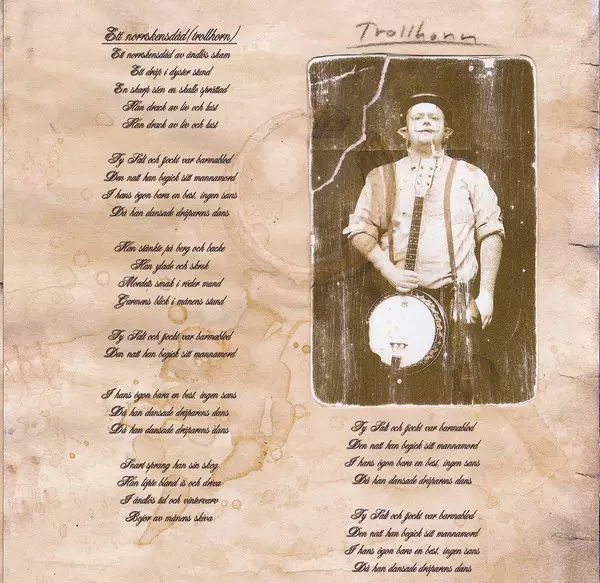 Ett norrskensdåd (trollhorn)
Ett norrskensdåd av ändlös skam
Ett dråp i dyster stund
En skarp sten en skalle sprättad
Han drack av liv och lust
Han drack av liv och lust
Ty Salt och tjockt var barmablod
Den natt han begick sitt mannamord
I hans ögon bara en best, ingen sans
Då han dansade dråparens dans
Han stänkte på berg och backe
Han ylade och skrek
Mordets smak i röder mund
Garmens blick i månens stund
Ty Salt och tjockt var barmablod
Den natt han begick sitt mannamord
I hans ögon bara en best, ingen sans
Då han dansade dråparens dans
Då han dansade dråparens dans
Snart sprang han sin skog
Han löpte bland is och driva
I ändlös tid och vintervarv
Bojor av månens skiva
Trollhorn
Ty Salt och tjockt var barmablod
Den natt han begick sitt mannamord
I hans ögon bara en best, ingen sans
Då han dansade dråparens dans
Ty Salt och tjockt var barmablod
Den natt han begick sitt mannamord
I hans ögon bara en best, ingen sans
Då han dansade dråparens dans